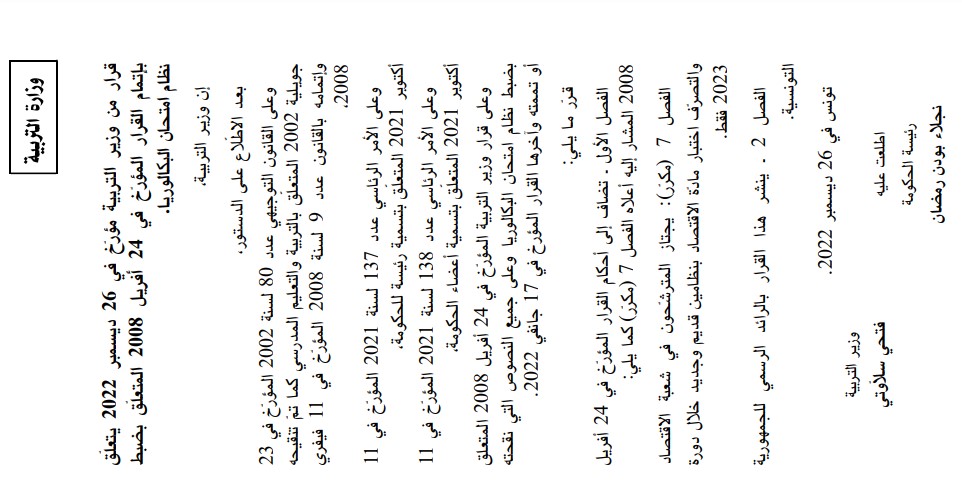 وزارة التربية
قرار من وزير التربية مؤرّخ في 26 ديسمبر 2022 يتعلّق
بإتمام القرار المؤرّخ في 24 أفريل 2008 المتعلّق بضبط
نظام امتحان البكالوريا.
إن وزير التربية،
بعد الاطّلاع على الدستور،
وعلى القانون التوجيهي عدد 80 لسنة 2002 المؤرّخ في 23
جويلية 2002 المتعلّق بالتربية والتعليم المدرسي كما تمّ تنقيحه
وإتمامه بالقانون عدد 9 لسنة 2008 المؤرّخ في 11 فيفري
2008،
وعلى الأمر الرئاسي عدد 137 لسنة 2021 المؤرّخ في 11
أكتوبر 2021 المتعلّق بتسمية رئيسة للحكومة،
وعلى الأمر الرئاسي عدد 138 لسنة 2021 المؤرّخ في 11
أكتوبر 2021 المتعلّق بتسمية أعضاء الحكومة،
وعلى قرار وزير التربية المؤرّخ في 24 أفريل 2008 المتعلق
بضبط نظام امتحان البكالوريا وعلى جميع النصوص التي نقحته
أو تممته وآخرها القرار المؤرخ في 17 جانفي 2022.
قرّر ما يلي:
الفصل الأول ـ تضاف إلى أحكام القرار المؤرّخ في 24 أفريل
2008 المشار إليه أعلاه الفصل 7 (مكرّر) كما يلي:
الفصل 7 (مكرّر): يجتاز المترشّحون في شعبة الاقتصاد
والتصرّف اختبار مادّة الاقتصاد بنظامين قديم وجديد خلال دورة
2023 فقط.
الفصل 2 ـ ينشر هذا القرار بالرائد الرسمي للجمهورية
التونسية.
تونس في 26 ديسمبر 2022.
وزير التربية
فتحي سلاّوتي
اطلعت عليه
رئيسة الحكومة
نجلاء بودن رمضان